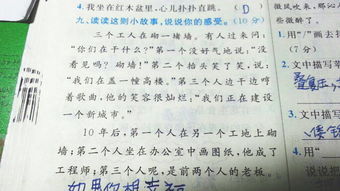 4.我坐在红木盆里,心儿扑扑直跳。 (D)
九、读读这则小故事,说说你的感受。(10分)
三个工人在砌一堵墙。有人过来问:
"你们在干什么?"第一个没好气地说:"没
看见吗?砌墙!"第二个抬头笑了笑,说:
"我们在盖一幢高楼。"第三个人边干边哼
着歌曲,他的笑容很灿烂:"我们正在建设
一个新城市。"
10年后,第一个人在另一个工地上砌
墙;第二个人坐在办公室中画图纸,他成了
工程师;第三个人呢,是前两个人的老板。
如果你想幸福
微风吹来,那
些微醉了。
2.用"/"画去
(7分)
2.文中描写
3.文中描写
4.用"
说说把